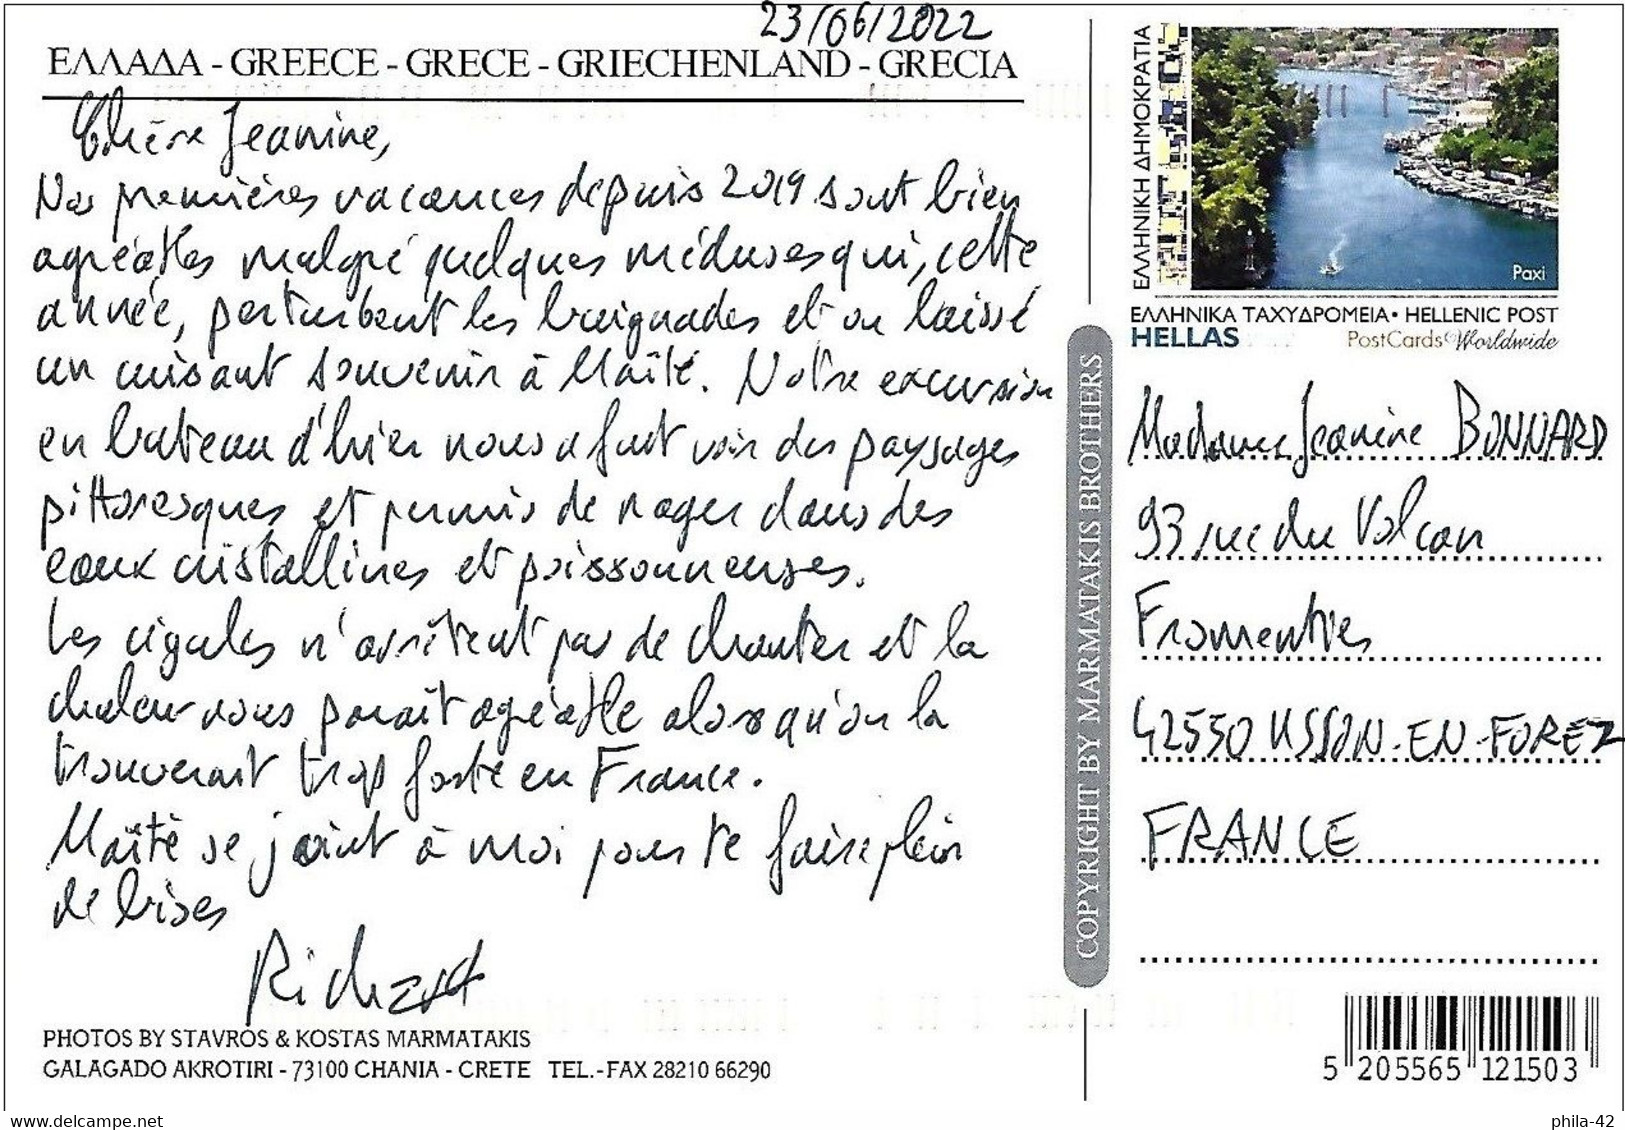 23/06/2022
ΕΛΛΑΔΑ - GREECE - GRECE - GRIECHENLAND - GRECIA
Chère Jeanine,
Nos premières vacances depuis 2019 sont bien
agréables malgré quelques méduses qui, cette
année, perturbent les baignades et on laissé
un cuisant souvenir à Maïté. Notre excursion
en bateau d'hier nous a fait voir des paysages
pittoresques et permis de nager dans des
eaux cristallines et poissonneuses.
Les cigales n'arrêtent pas de chanter et la
chaleur nous paraît agréable alors qu'on la
trouverait trop forte en France.
Maïté se joint à moi pour te faire plein
de bises
Richard
PHOTOS BY STAVROS & KOSTAS MARMATAKIS
GALAGADO AKROTIRI - 73100 CHANIA - CRETE TEL.-FAX 28210 66290
COPYRIGHT BY MARMATAKIS BROTHERS
ΕΛΛΗΝΙΚΗ ΔΗΜΟΚΡΑΤΙΑ
Paxi
ΕΛΛΗΝΙΚΑ ΤΑΧΥΔΡΟΜΕΙΑ • HELLENIC POST
HELLAS PostCards Worldwide
Madame Jeanine BONNARD
93 rue du Volcan
Fromentves
42550 USSON-EN-FOREZ
FRANCE
5 205565 121503
delcampe.net
phila-42